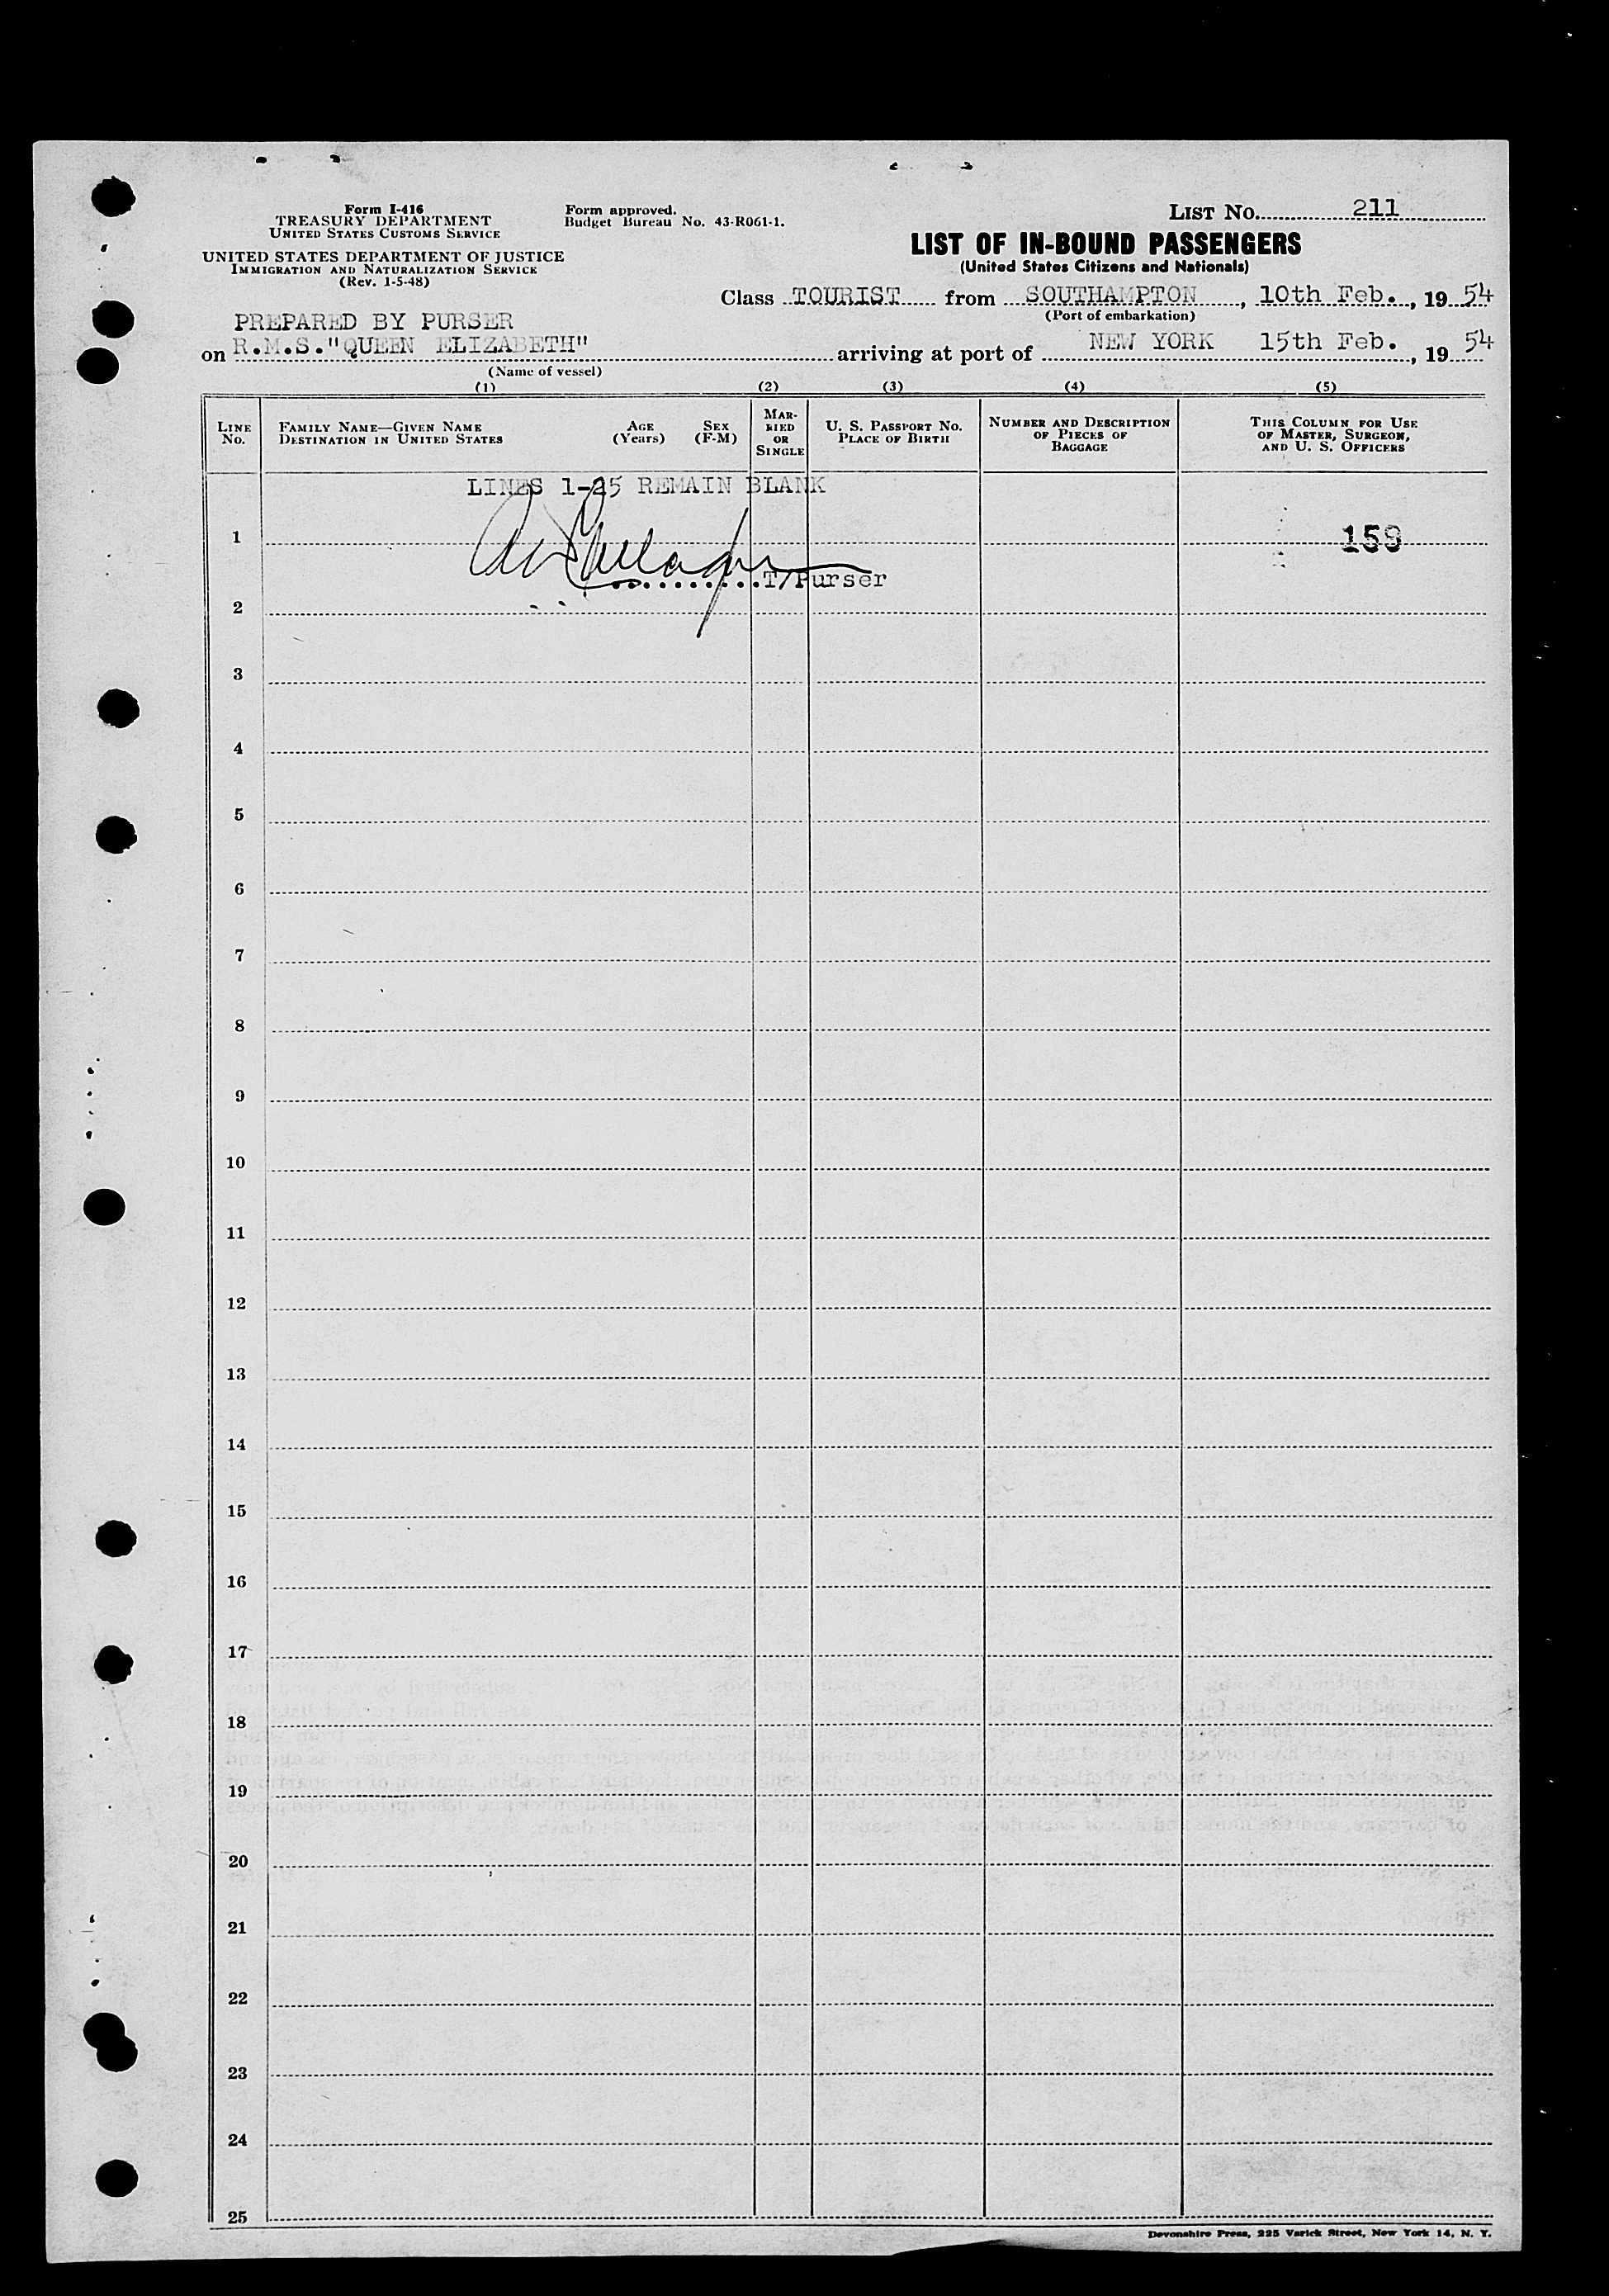 Form I-416
TREASURY DEPARTMENT
UNITED STATES CUSTOMS SERVICE
UNITED STATES DEPARTMENT OF JUSTICE
IMMIGRATION AND NATURALIZATION SERVICE
(Rev. 1-5-48)
Form approved.
Budget Bureau No. 43-R061-1.
LIST No. 211
LIST OF IN-BOUND PASSENGERS
(United States Citizens and Nationals)
Class TOURIST from SOUTHAMPTON, 10th Feb., 19 54
(Port of embarkation)
PREPARED BY PURSER
on R.M.S."QUEEN ELIZABETH" arriving at port of NEW YORK 15th Feb., 19 54
(Name of vessel)
(1) (2) (3) (4) (5)
LINE No.
FAMILY NAME—GIVEN NAME
DESTINATION IN UNITED STATES
AGE (Years)
SEX (F-M)
MARRIED OR SINGLE
U. S. PASSPORT No.
PLACE OF BIRTH
NUMBER AND DESCRIPTION
OF PIECES OF
BAGGAGE
THIS COLUMN FOR USE
OF MASTER, SURGEON,
AND U. S. OFFICERS
LINES 1-25 REMAIN BLANK
1 158
T/Purser
2
3
4
5
6
7
8
9
10
11
12
13
14
15
16
17
18
19
20
21
22
23
24
25
Devonshire Press, 225 Varick Street, New York 14, N. Y.